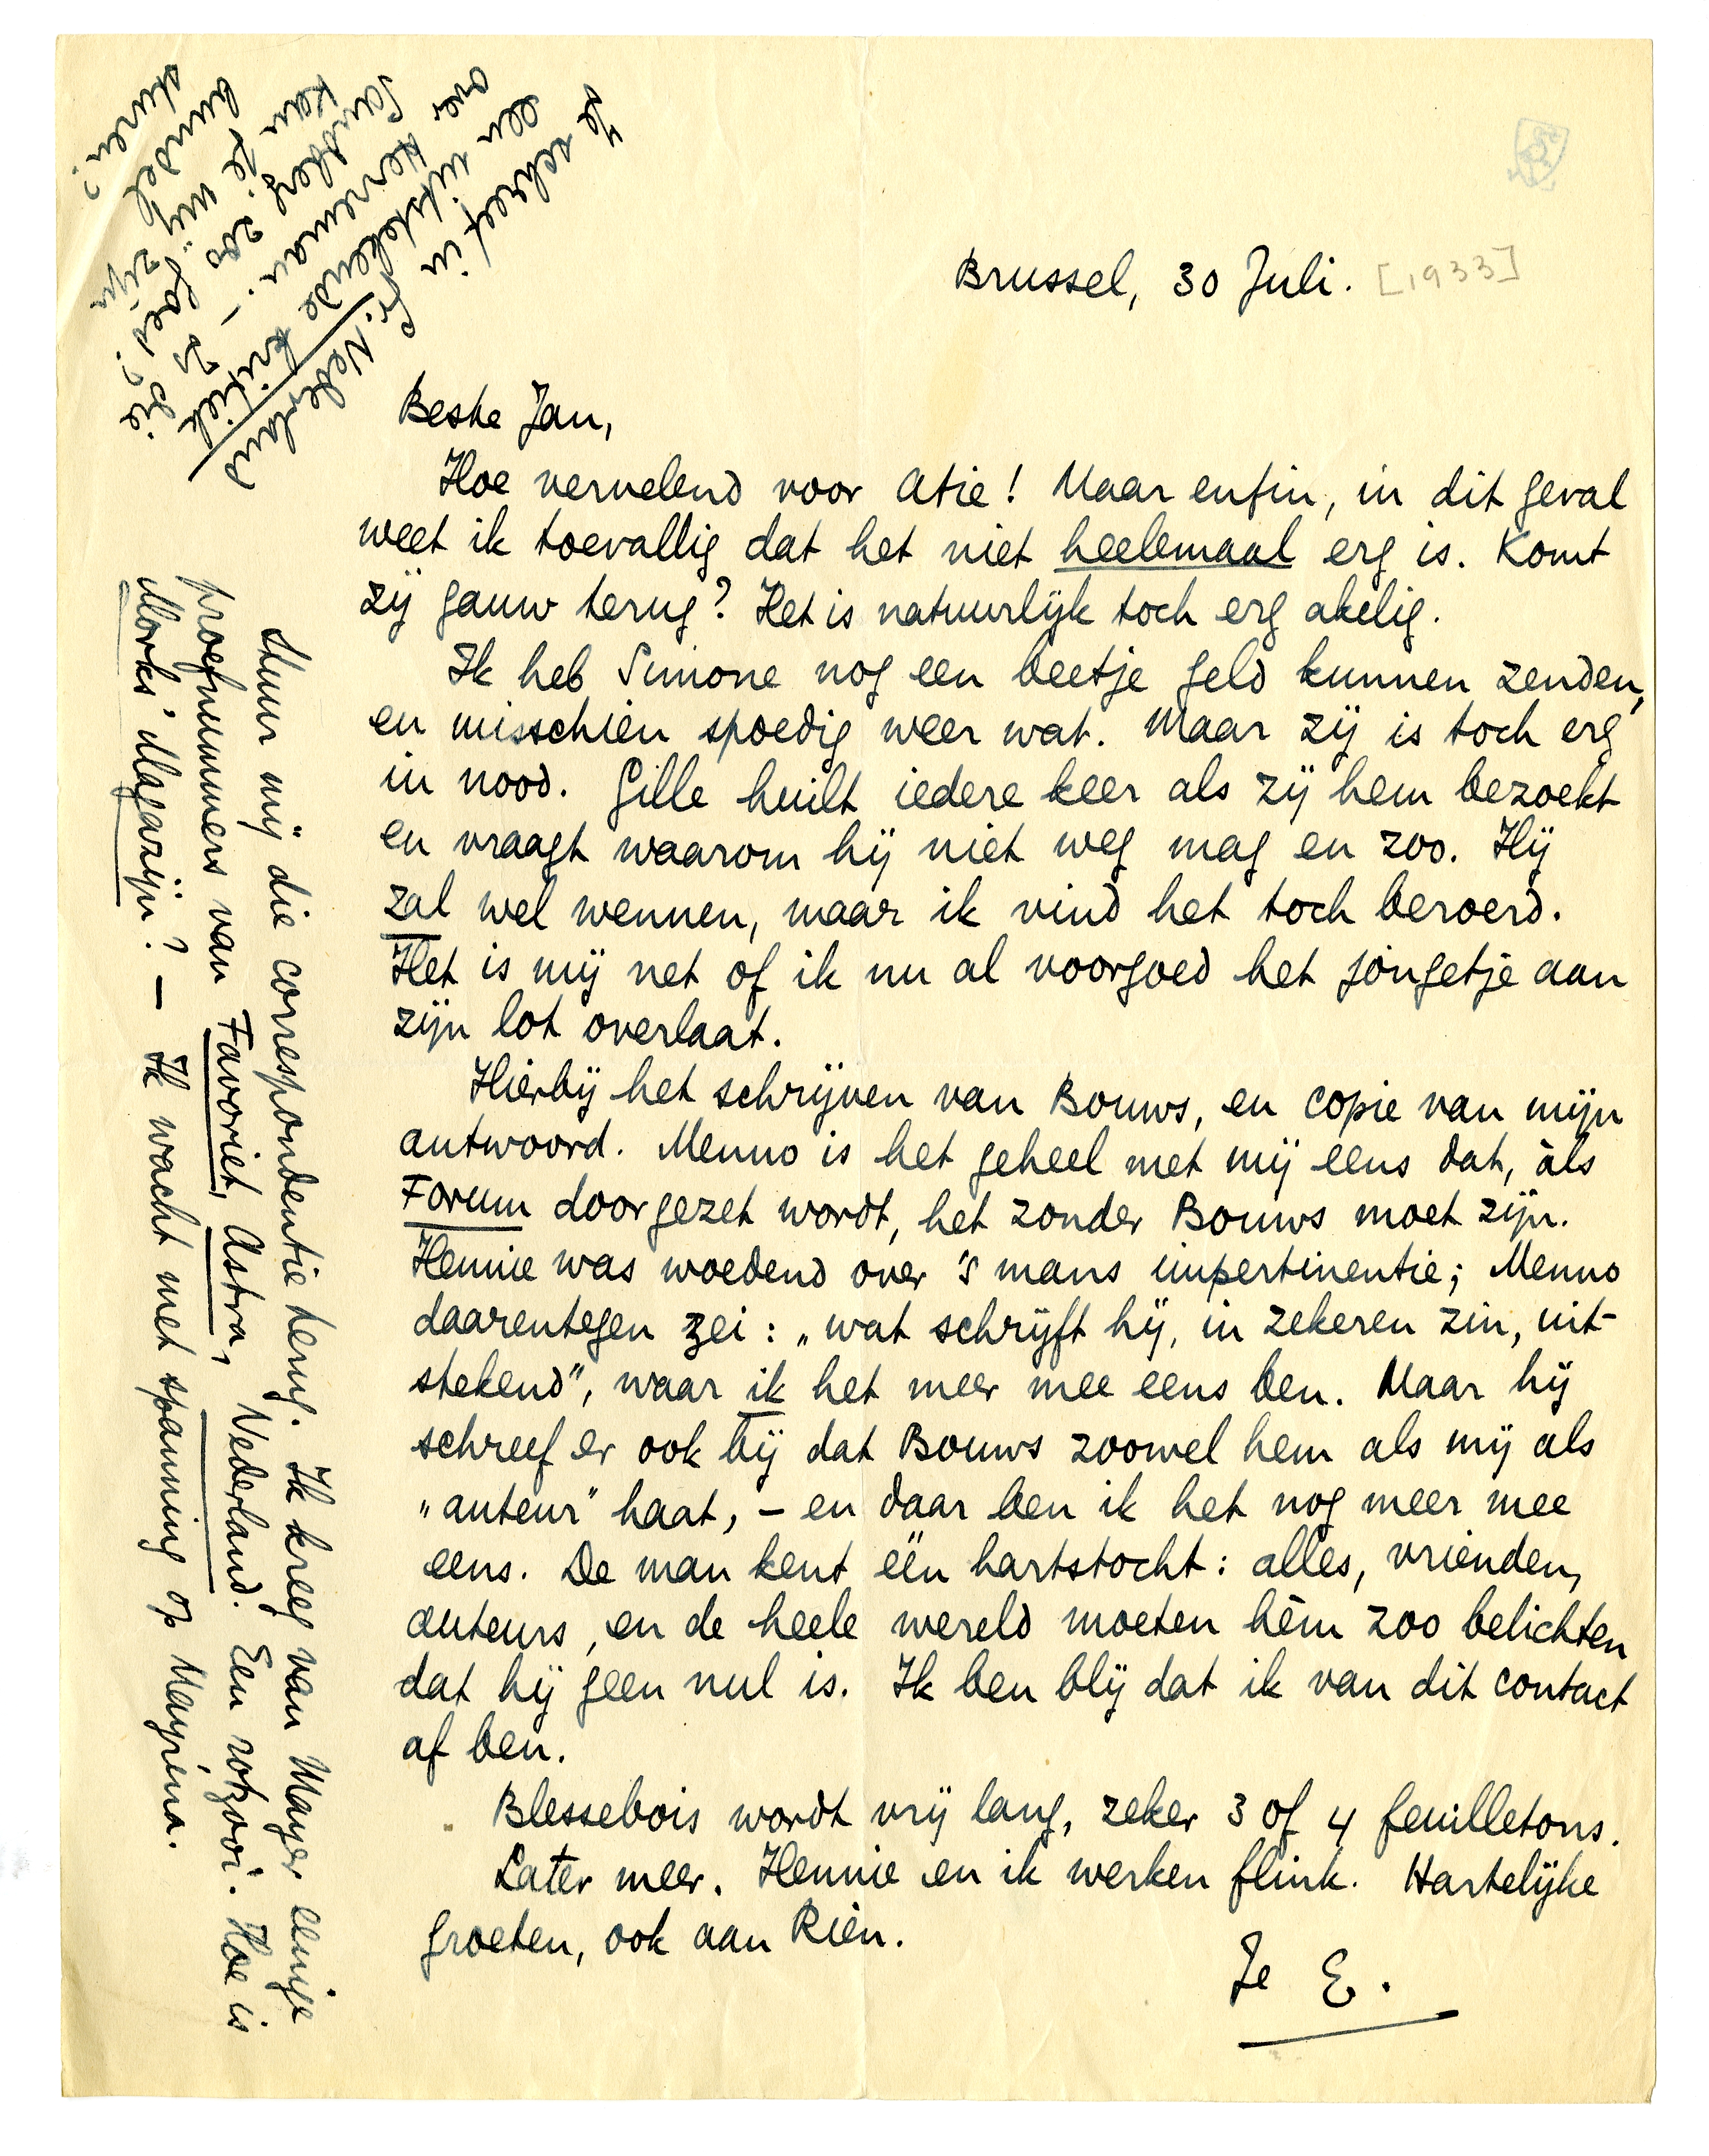 Brussel, 30 Juli. [1933]
Beste Jan,
Hoe vervelend voor Atie! Maar enfin, in dit geval
weet ik toevallig dat het niet heelemaal erg is. Komt
zij gauw terug? Het is natuurlijk toch erg akelig.
Ik heb Simone nog een beetje geld kunnen zenden,
en misschien spoedig weer wat. Maar zij is toch erg
in nood. Gille huilt iedere keer als zij hem bezoekt
en vraagt waarom hij niet weg mag en zoo. Hij
zal wel wennen, maar ik vind het toch beroerd.
Het is mij net of ik nu al voorgoed het jongetje aan
zijn lot overlaat.
Hierbij het schrijven van Bouws, en copie van mijn
antwoord. Menno is het geheel met mij eens dat, àls
Forum doorgezet wordt, het zonder Bouws moet zijn.
Hennie was woedend over 's mans impertinentie; Menno
daarentegen zei: „wat schrijft hij, in zekeren zin, uit-
stekend", waar ik het meer mee eens ben. Maar hij
schreef er ook bij dat Bouws zoowel hem als mij als
„auteur" haat, – en daar ben ik het nog meer mee
eens. De man kent één hartstocht: alles, vrienden,
auteurs, en de heele wereld moeten hèm zoo belichten
dat hij geen nul is. Ik ben blij dat ik van dit contact
af ben.
Blessebois wordt vrij lang, zeker 3 of 4 feuilletons.
Later meer. Hennie en ik werken flink. Hartelijke
groeten, ook aan Rien.
Je E.
Stuur mij die correspondentie terug. Ik kreeg van Mayer eenige
proefnummers van Favoriet, Astra, Nederland. Een rotzooi. Hoe is
Morks' Magazijn? — Ik wacht met spanning op Mayréna.
Je schreef in Gr. Nederland
een uitstekende kritiek
over Herreman. –
Sandberg zoo
kan je mij
bundel zijn
sturen?